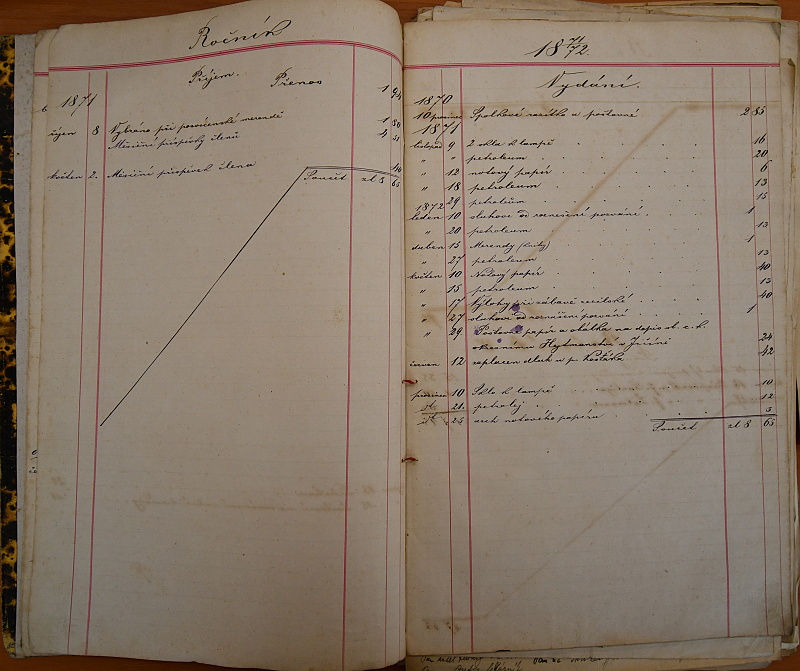 Ročník
Příjem. Přenos 1 94
1871
říjen 8 Vybráno při posvícenské merendě 1 80
Měsíční příspěvky členů 4 51
květen 2. Měsíční příspěvek člena 40
Součet zl 8 65
18 71/72.
Vydání.
1870
10 prosinec Spolkové razítko a poštovné 2 85
1871
listopad 9 2 skla k lampě 16
" " petroleum 20
" 12 notový papír 6
" 18 petroleum 13
" 29 petroleum 15
1872
leden 10 sluhovi od roznešení pozvání 1
" 20 petroleum 13
duben 15 Merendy 1
" 27 petroleum 13
květen 10 Notový papír 40
" 15 petroleum 13
" 17 výlohy při zábavě 40
" 27 sluhovi od roznešení pozvání 1
" 29 Poštovní papír a obálka na dopis sl. c. k.
okresnímu Hejtmanství v Jičíně 24
červen 12 zaplacen dluh u p. Košťáka 42
prosinec 10 Sklo k lampě 10
dto 21. petrolej 12
dto 25 arch notového papíru 3
Součet zl 8 65